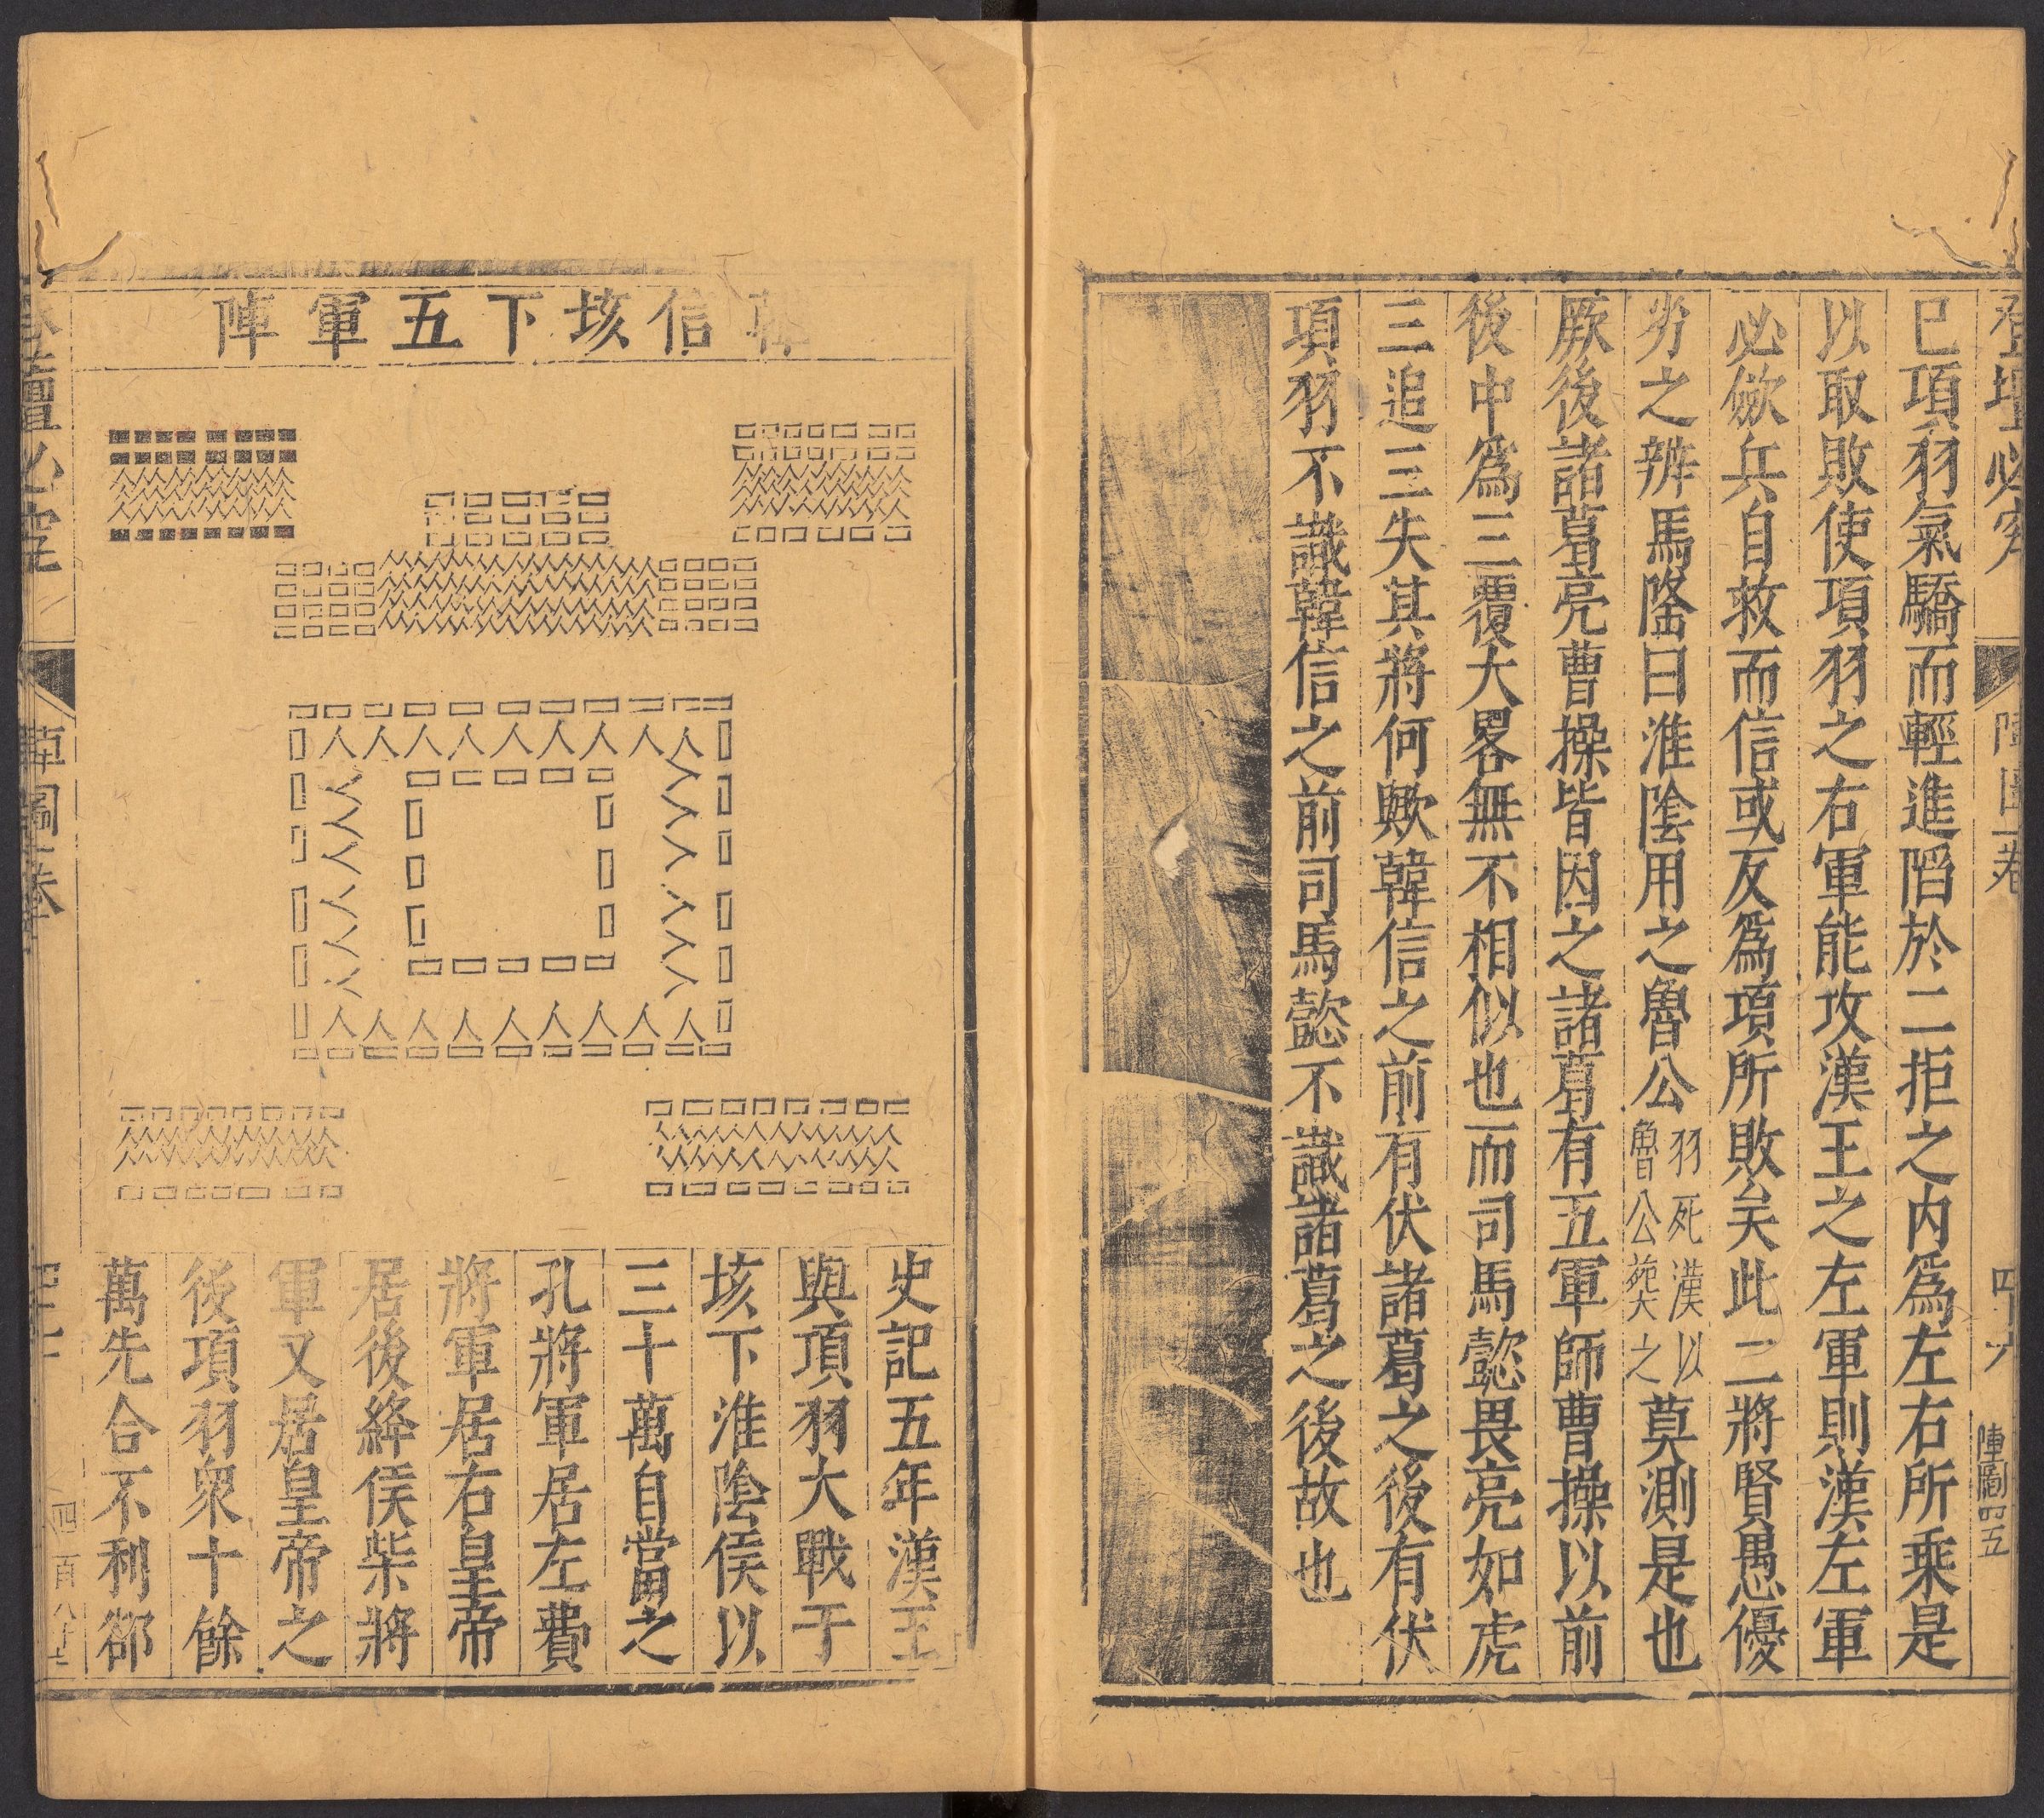 登壇必究
陣圖一卷
四十六
陣圖四五
已項羽氣驕而輕進陷於二拒之内爲左右所乘是
以取敗使項羽之右軍能攻漢王之左軍則漢左軍
必斂兵自救而信或反爲項所敗矣此二將賢愚優
劣之辨馬隆曰淮陰用之魯公羽死漢以魯公葬之莫測是也
厥後諸葛亮曹操皆因之諸葛有五軍師曹操以前
後中爲三覆大畧無不相似也而司馬懿畏亮如虎
三追三失其將何歟韓信之前有伏諸葛之後有伏
項羽不識韓信之前司馬懿不識諸葛之後故也
韓信垓下五軍陣
史記五年漢王
與項羽大戰于
垓下淮陰侯以
三十萬自當之
孔將軍居左費
將軍居右皇帝
居後絳侯柴將
軍又居皇帝之
後項羽衆十餘
萬先合不利郤
登壇必究
陣圖一卷
四十七
四百八十七